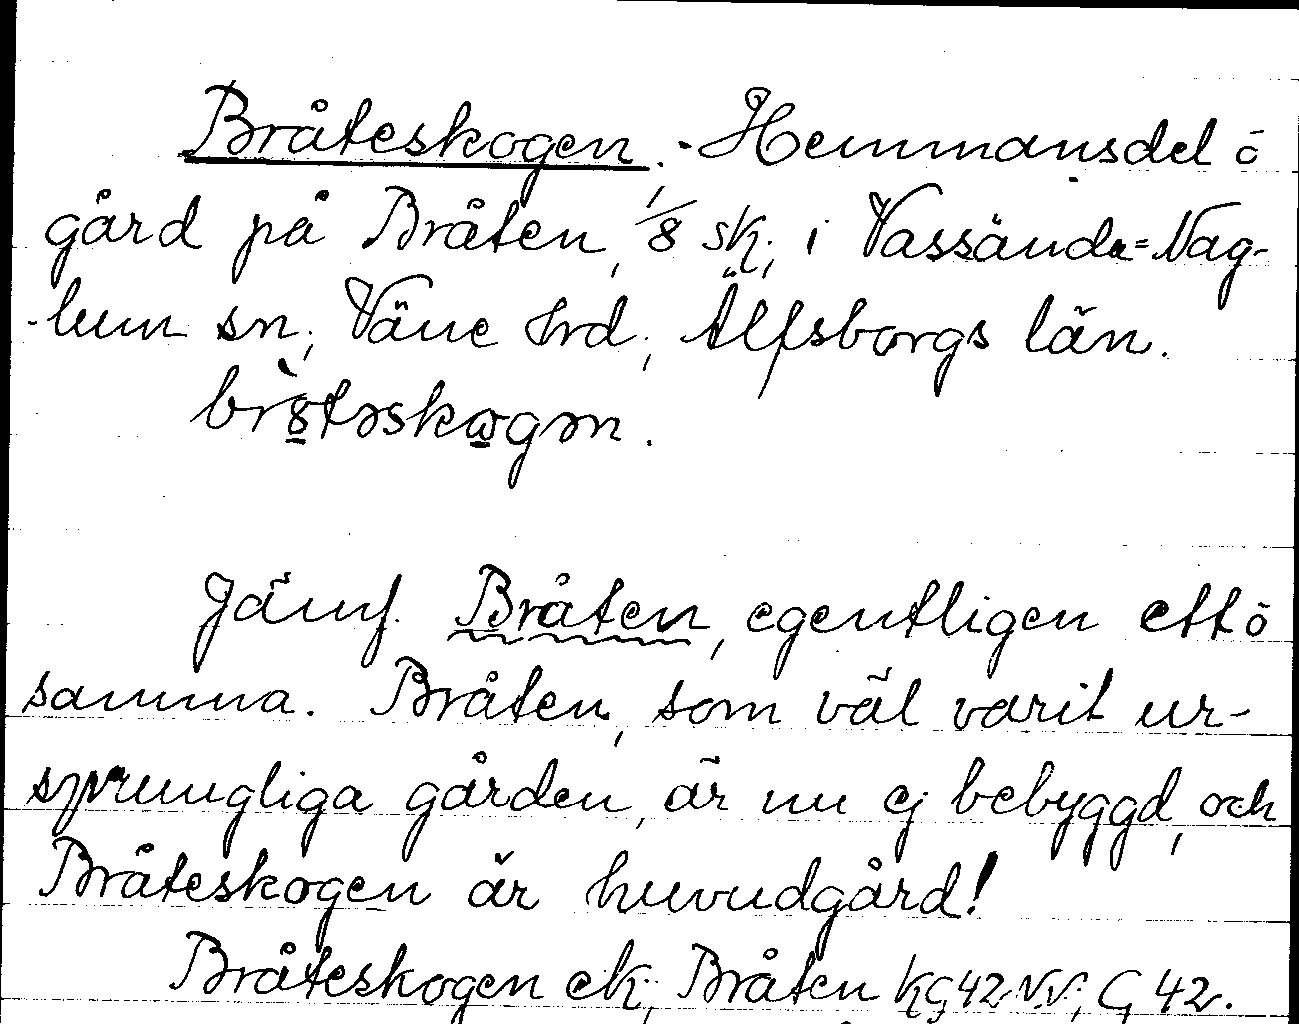 Bråteskogen. - Hemmansdel o
gård på Bråten, 1/8 sk., i Vassända=Nag-
-lum sn, Väne hrd, Älfsborgs län.
Jämf. Bråten, egentligen ett o
samma. Bråten, som väl varit ur-
sprungliga gården, är nu ej bebyggd, och
Bråteskogen är huvudgård!
Bråteskogen ek, Bråten KG42 NV, G 42.